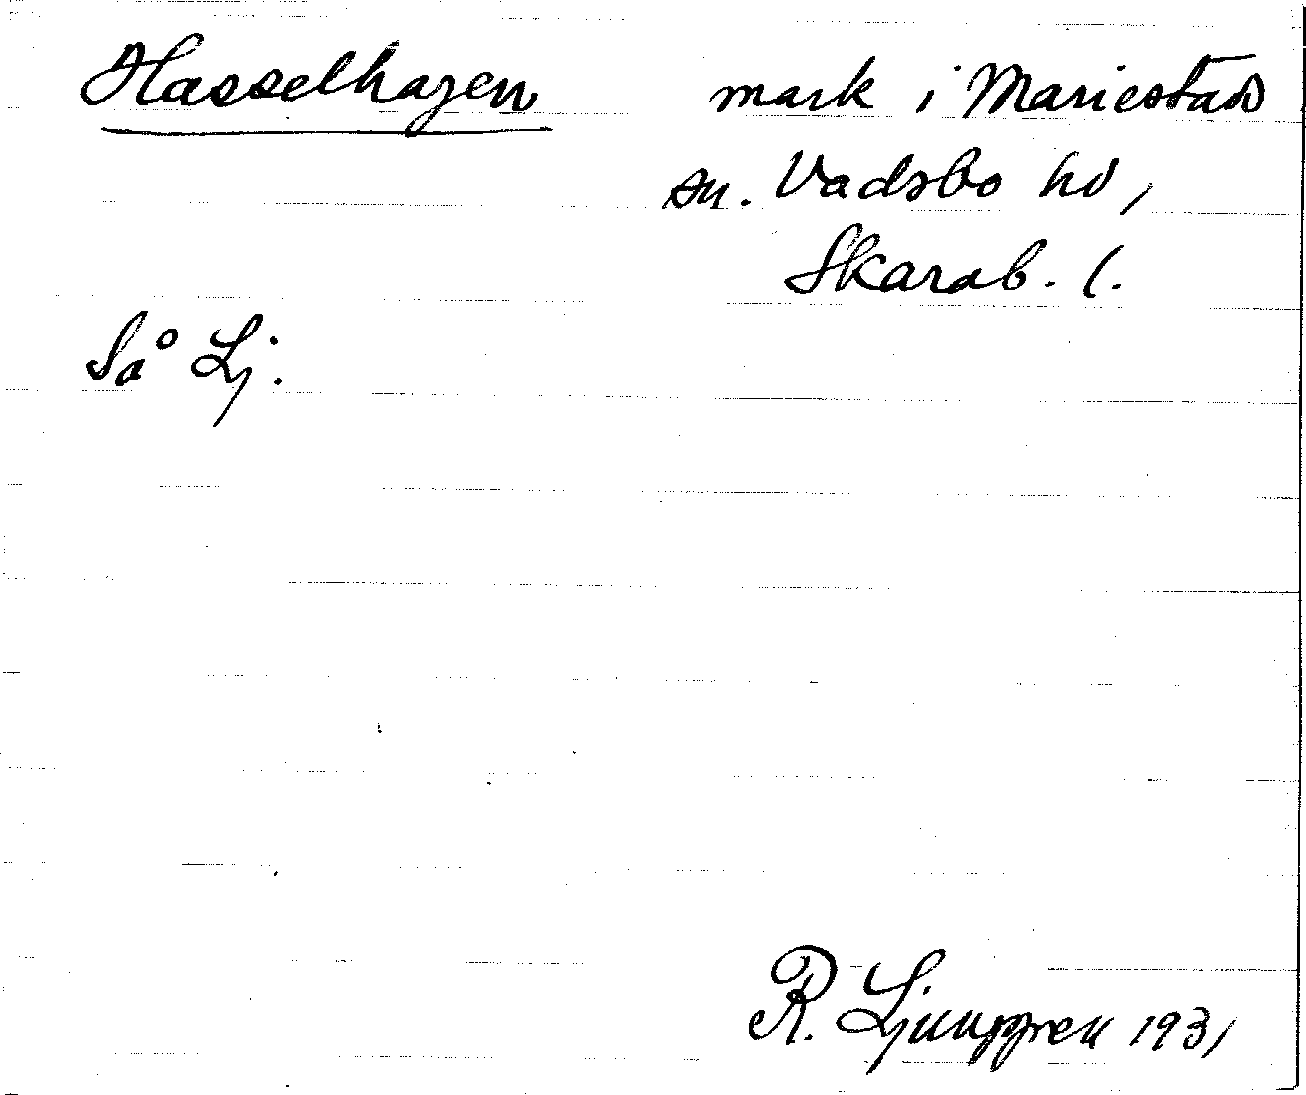 Hasselhagen mark i Mariestads
sn. Vadsbo hd,
Skarab. l.
Så Lj.
R. Ljunggren 1931